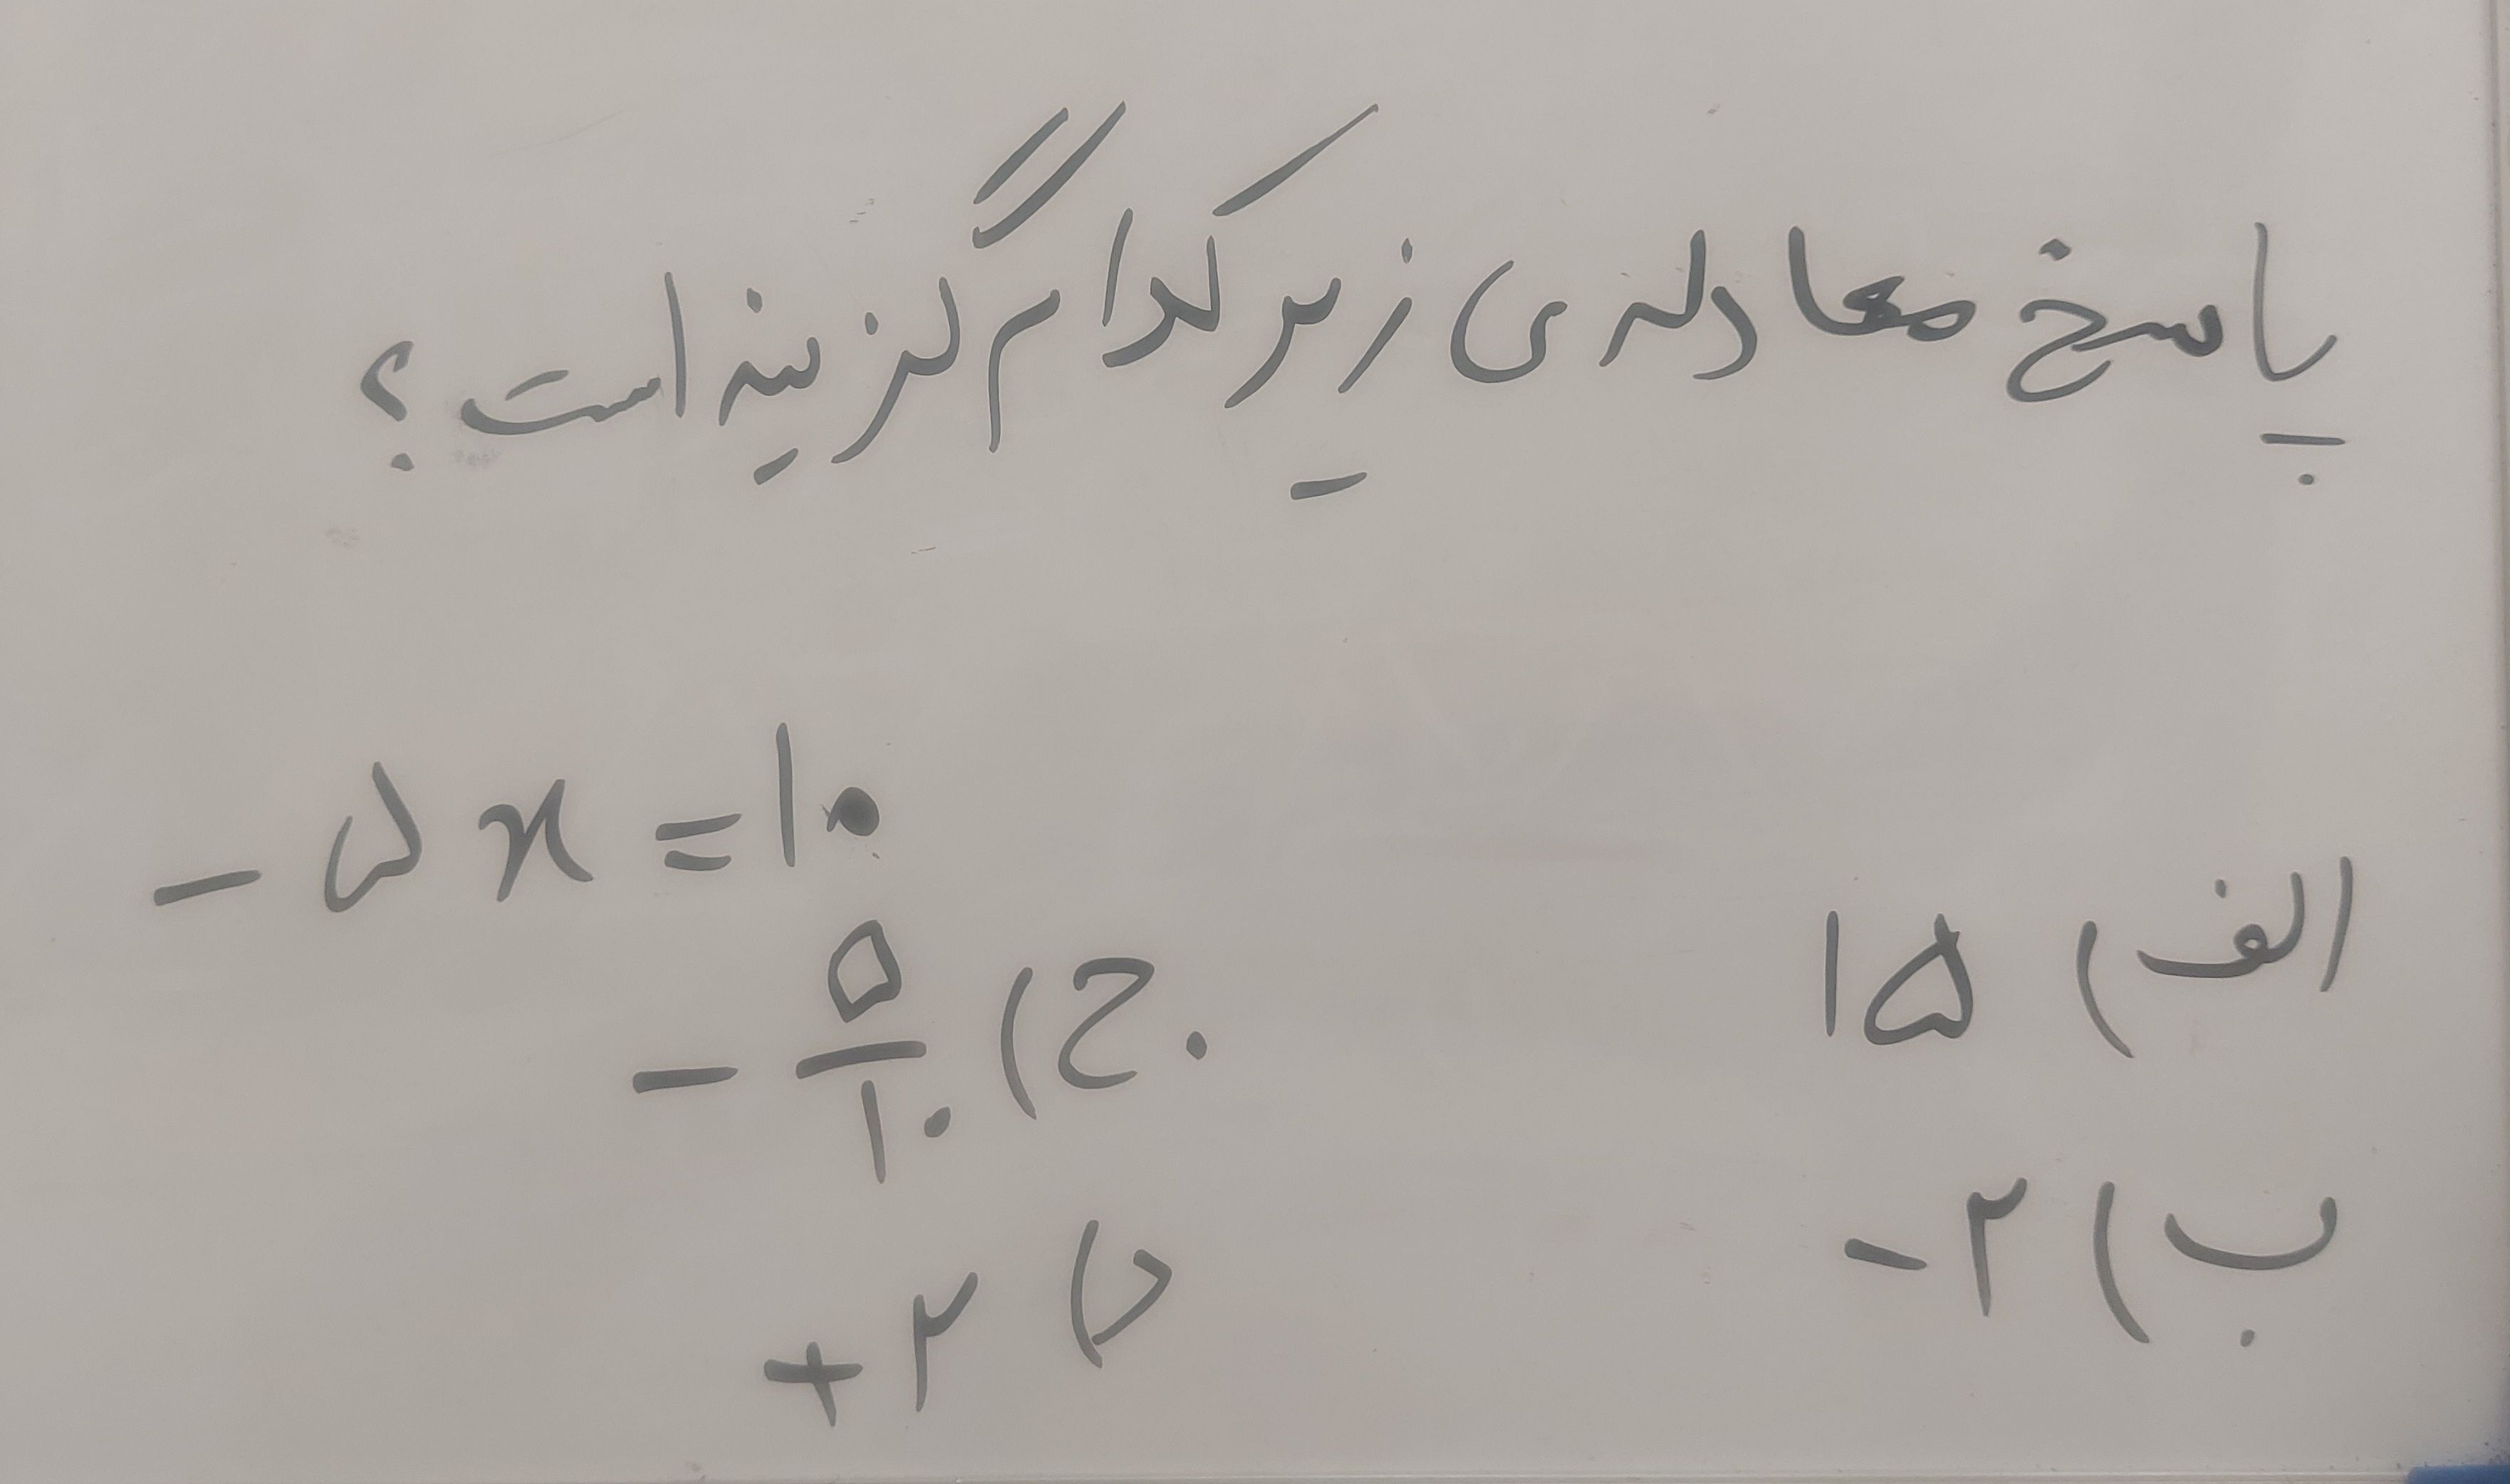 پاسخ معادله ی زیر کدام گزینه است؟
-۵x=۱۰
الف) ۱۵
ج) -۵/۱۰
ب) -۲
د) +۲